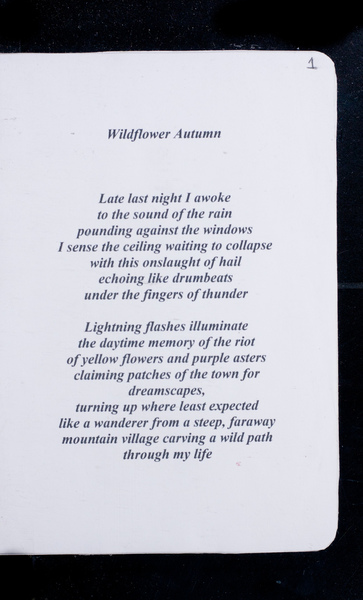 1
Wildflower Autumn
Late last night I awoke
to the sound of the rain
pounding against the windows
I sense the ceiling waiting to collapse
with this onslaught of hail
echoing like drumbeats
under the fingers of thunder
Lightning flashes illuminate
the daytime memory of the riot
of yellow flowers and purple asters
claiming patches of the town for
dreamscapes,
turning up where least expected
like a wanderer from a steep, faraway
mountain village carving a wild path
through my life